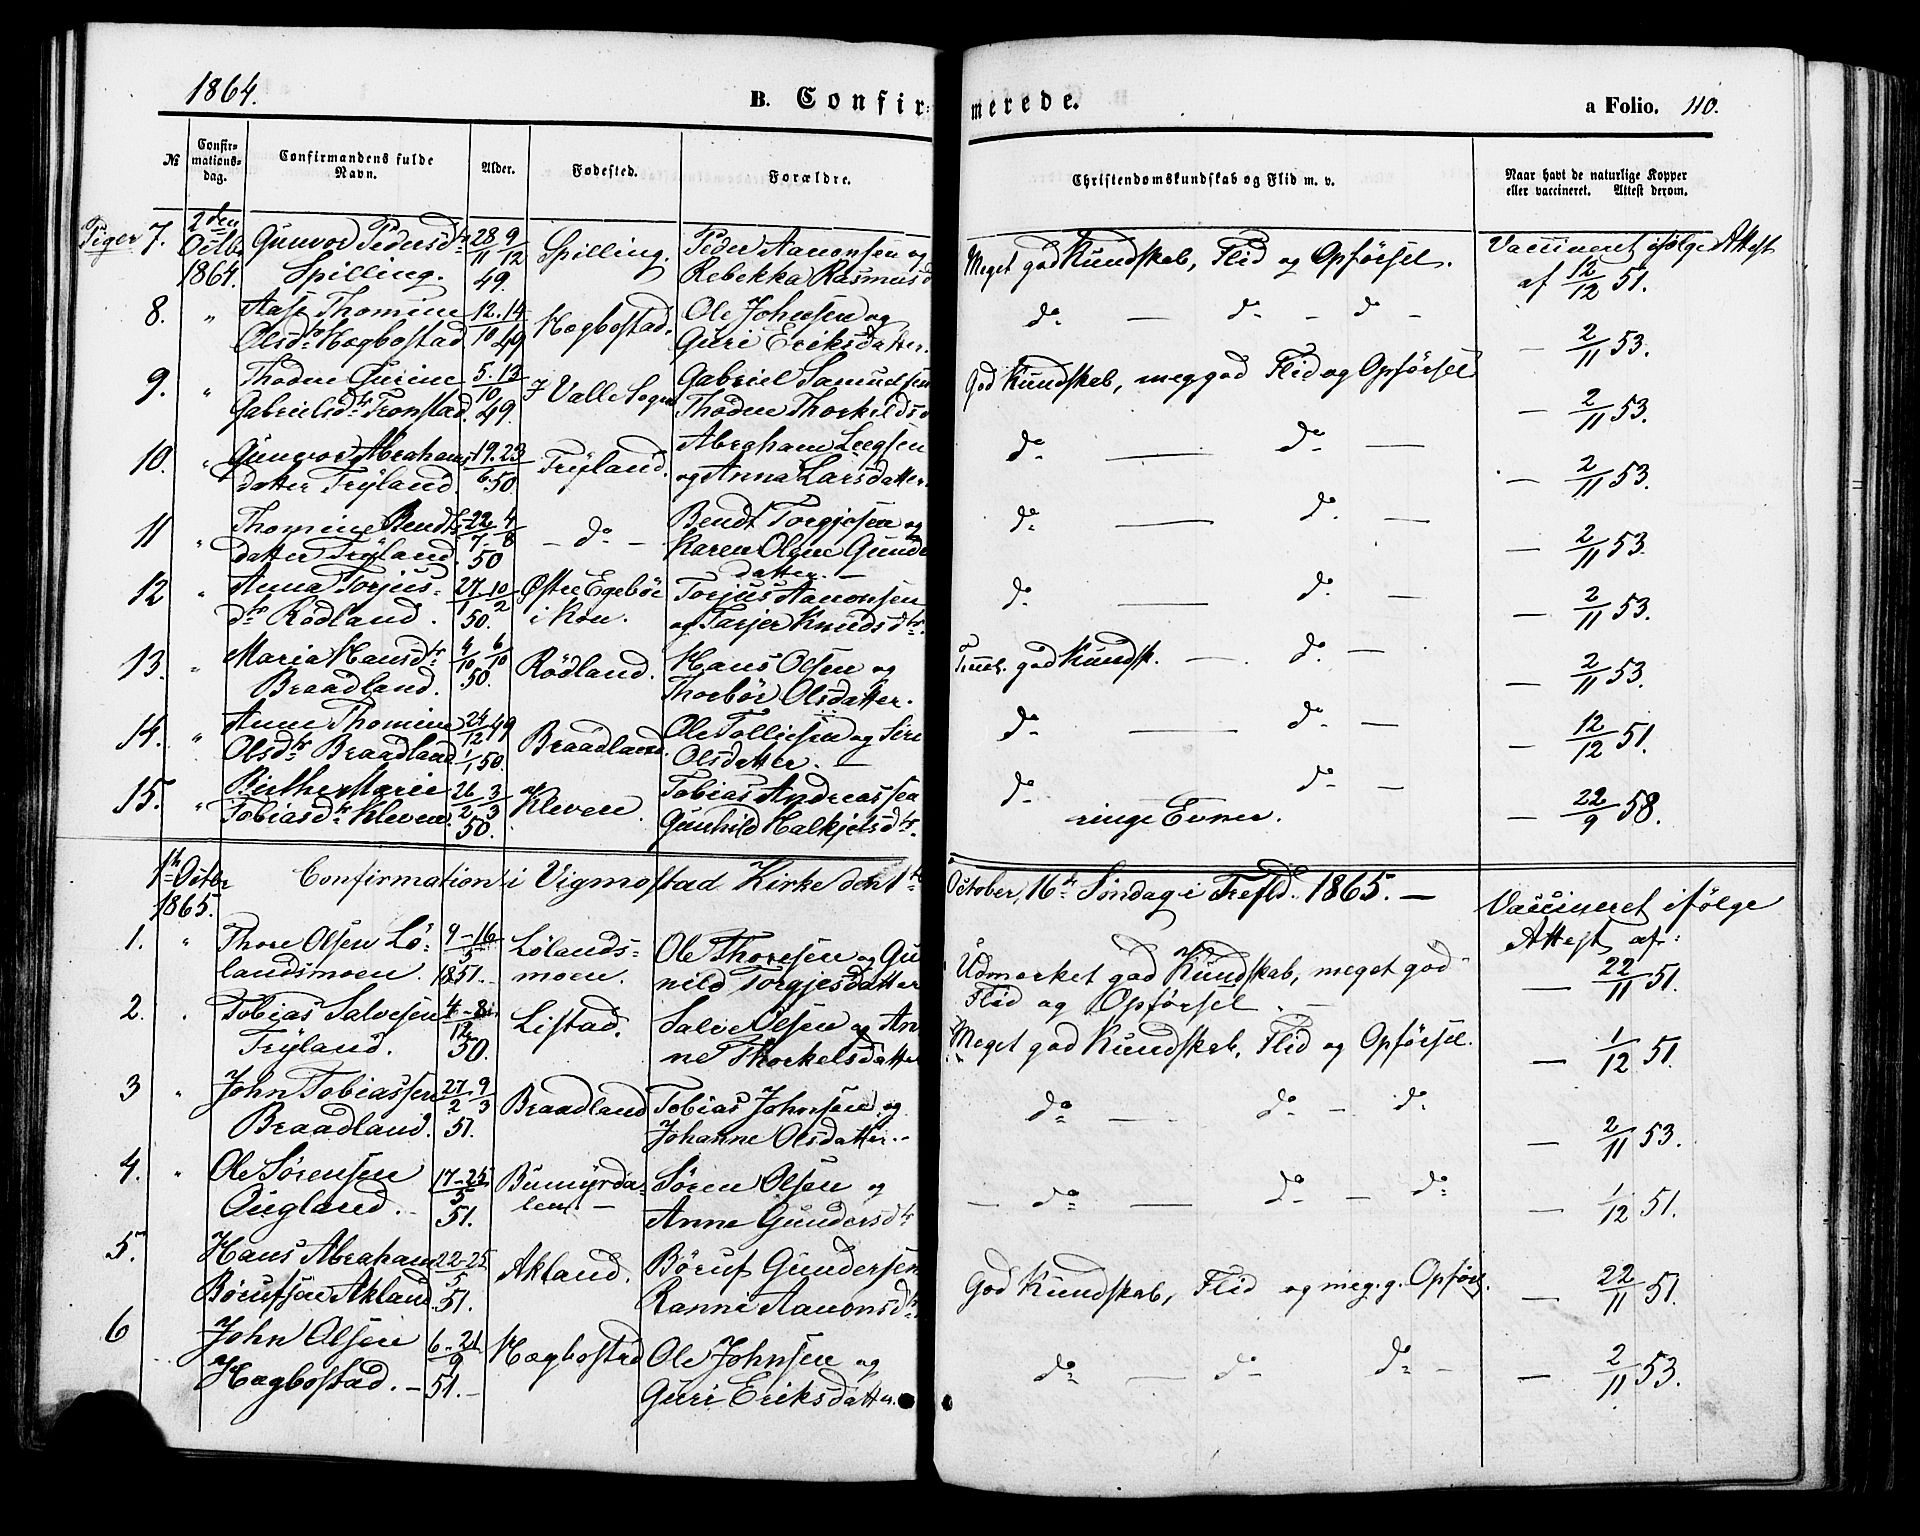 1864.
B. Confirmerede.
a Folio. 110.
№ Confirmationsdag. Confirmandens fulde Navn. Alder. Fødested. Forældre. Christendomskundskab og Flid m. v. Naar havt de naturlige Kopper eller vaccineret. Attest derom.
Piger 7. 2den Gunvor Pedersdtr 28/11 9/12 Spilling. Peder Aanonsen og Meget god Kundskab, Flid og Opførsel. Vaccineret ifølge Attest
Octbr 1864. Spilling. 49. Rebekka Rasmusd af 12/12 51.
8. " Aase Thomine 12. 14 Hægbostad. Ole Johnsen og do — do - do - — 2/11 53.
Olsdr Hægbostad 10 49 Guri Eriksdatter.
9. " Thodne Gurine 5. 13 I Valle Sogn Gabriel Samuelsen God Kundskab, meg god Flid og Opførsel — 2/11 53.
Gabrielsdtr Tronstad. 10 49. Thodne Thorkildsd
10. " Gunvor Abrahams 19. 23 Tryland. Abraham Leegsen do — do — — 2/11 53.
datter Tryland. 6. 50. og Anna Larsdatter.
11 " Thomine Bendts 22 4 — do — Bendt Torgjesen og do — do. — — 2/11 53.
datter Tryland. 7. 8 50 Karen Olene Gunds
datter. —
12 " Anna Torjus- 27 10 Østre Egebøe Torjus Aanonsen do. — do. — — 2/11 53.
dr Rødland. 1 2 50. i Kon. og Tarjer Knudsdtr.
13. " Maria Hansdtr 4/10 6/10 Rødland. Hans Olsen og Temel. god Kundsk. — do. — — 2/11 53.
Braadland. 50. Thorbør Olsdatter.
14. " Anne Thomine 24/12 49 Braadland. Ole Tolliesen og Siri do — do — — 12/12 51.
Olsdtr Braadland 1/1 50. Olsdatter. —
15. " Birthe Marie 26 3 Kleven. Tobias Andreassen do — do — — 22/9 58.
Tobiasdtr Kleven. 2 3 50. Gunhild Halkjelsdtr. ringe Evner.
1te Octbr 1865. Confirmation i Vigmostad Kirke den 1te October, 16de Søndag i Trefld. 1865. — Vaccineret ifølge
Attest af:
1. " Thore Olsen Lø- 9-16 Lølands- Ole Thoresen og Gu Udmerket god Kundskab, meget god — 22/11 51.
landsmoen. 5 1851. moen. nild Torgjesdatter Flid og Opførsel. —
2. " Tobias Salvesen 4-8 Listad. Salve Olsen og An Meget god Kundskab, Flid og Opførsel. — 1/12 51.
Tryland. 12 50. ne Thorkelsdatter
3 " John Tobiassen 27/2 9/3 Braadland Tobias Johnsen og do — do — do — 2/11 53.
Braadland. 51. Johanne Olsdatter.
4. " Ole Sørensen 17-25 Bumyrda- Søren Olsen og — do — do — do — 1/12 51.
Ougland. 5 51. len. — Anne Gundersdtr
5. Hans Abraham 22-25 Akland. Børuf Gundersen God Kundskab, Flid og meg. g. Opførs. — 22/11 51.
Børufsen Akland 5 51. Ranne Aanonsdtr
6 John Olsen 6-21 Hægbostad Ole Johnsen og do — do — do — — 2/11 53.
Hægbostad. — 9 51. — Guri Eriksdatter.